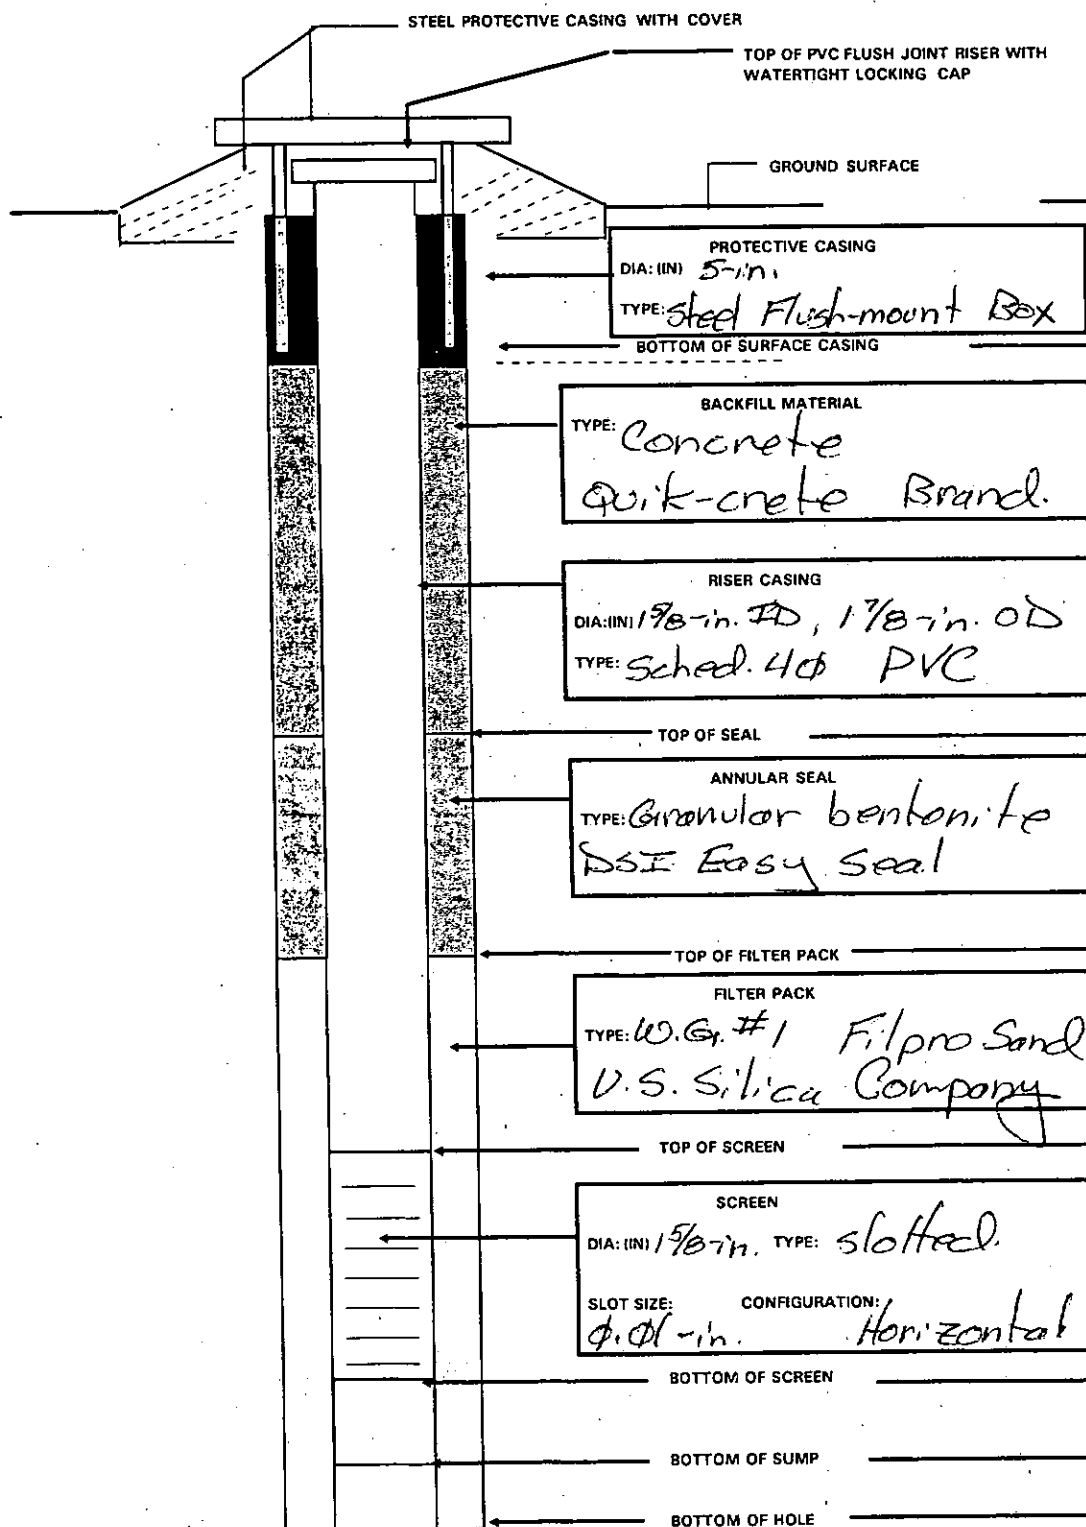 STEEL PROTECTIVE CASING WITH COVER
TOP OF PVC FLUSH JOINT RISER WITH
WATERTIGHT LOCKING CAP
GROUND SURFACE
PROTECTIVE CASING
DIA: (IN) 5-in.
TYPE: Steel Flush-mount Box
BOTTOM OF SURFACE CASING
BACKFILL MATERIAL
TYPE: Concrete
Quik-crete Brand.
RISER CASING
DIA:(IN) 1 5/8-in. ID, 1 7/8-in. OD
TYPE: Sched. 4ø PVC
TOP OF SEAL
ANNULAR SEAL
TYPE: Granular bentonite
DSI Easy Seal
TOP OF FILTER PACK
FILTER PACK
TYPE: W.G. #1 Filpro Sand
U.S. Silica Company
TOP OF SCREEN
SCREEN
DIA: (IN) 1 5/8-in. TYPE: slotted.
SLOT SIZE: CONFIGURATION:
ø.ø1-in. Horizontal
BOTTOM OF SCREEN
BOTTOM OF SUMP
BOTTOM OF HOLE